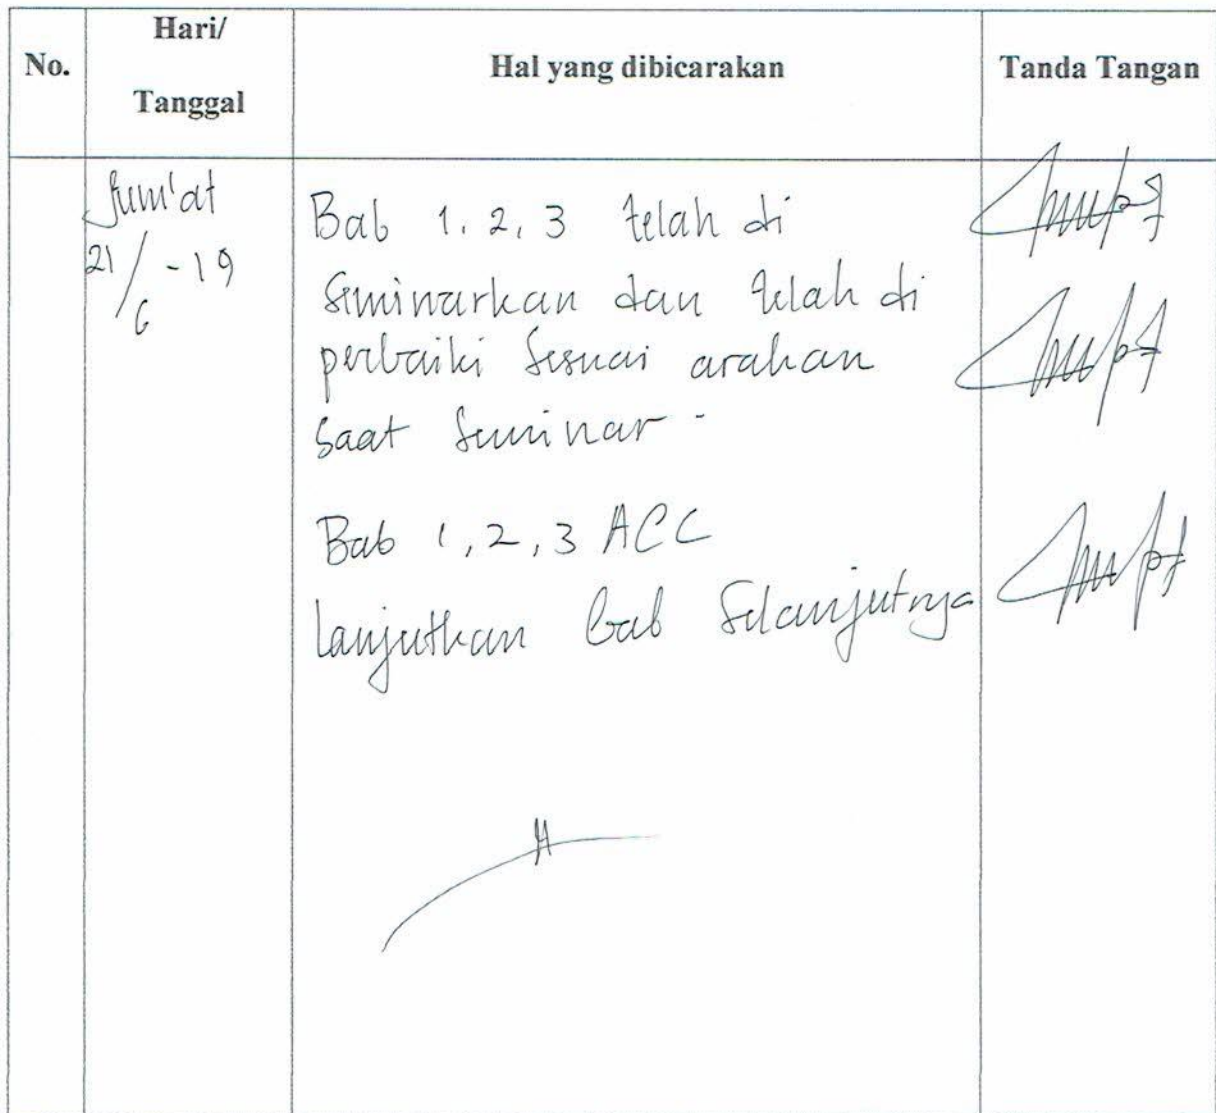 No.
Hari/
Tanggal
Hal yang dibicarakan
Tanda Tangan
Jum'at
21/6 - 19
Bab 1, 2, 3 telah di
seminarkan dan telah di
perbaiki sesuai arahan
saat seminar -
Bab 1, 2, 3 ACC
lanjutkan bab selanjutnya